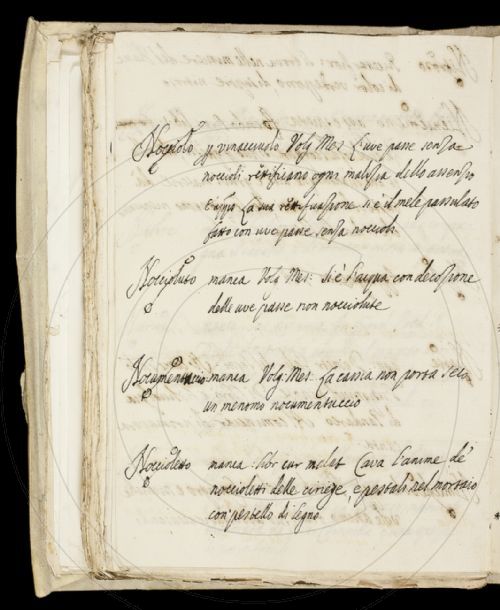 Nocciolo p vinacciuolo Volg Mes. L'uve passe senza
noccioli rettificano ogni malizia dello assenzio
La sua rettificazione si è il mele passulato
fatto con uve passe senza noccioli
Nocciolato manca Volg Mes: si è l'acqua con decozione
delle uve passe non nocciolute
Nocumentuccio manca Volg: Mes. La cassia non porta seco
un menomo nocumentuccio
Noccioletto manca: libr cur malat Cava l'anime de'
noccioletti delle ciriege, e pestali nel mortaio
con pestello di legno